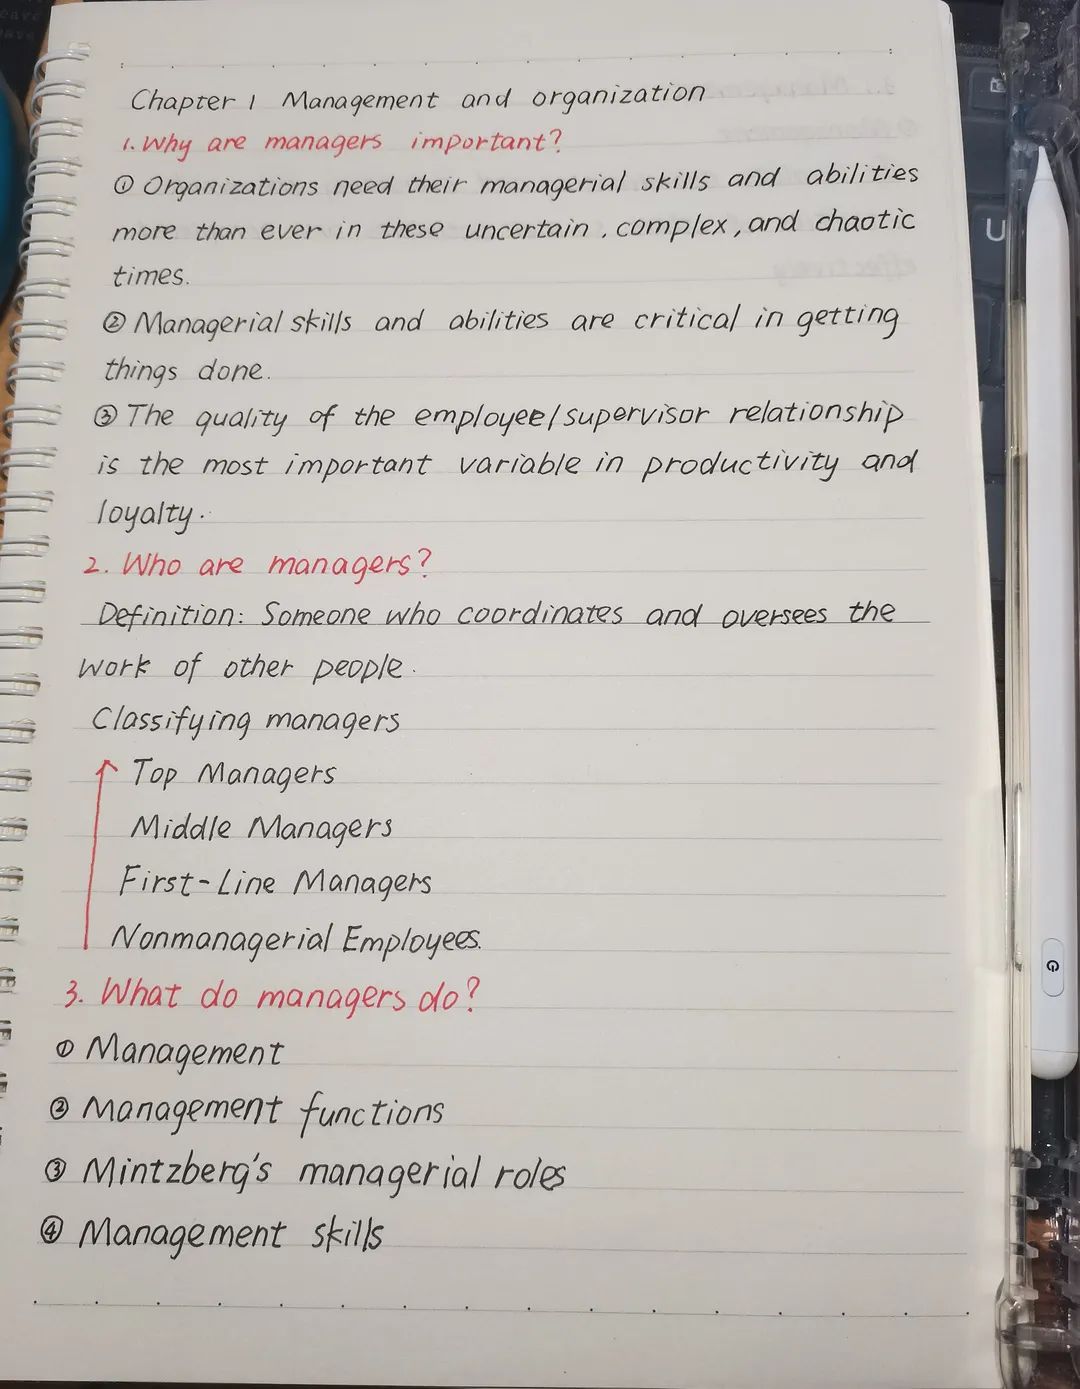 Chapter 1 Management and organization
1. Why are managers important?
① Organizations need their managerial skills and abilities
more than ever in these uncertain, complex, and chaotic
times.
② Managerial skills and abilities are critical in getting
things done.
③ The quality of the employee/supervisor relationship
is the most important variable in productivity and
loyalty.
2. Who are managers?
Definition: Someone who coordinates and oversees the
work of other people.
Classifying managers
Top Managers
Middle Managers
First-Line Managers
Nonmanagerial Employees.
3. What do managers do?
① Management
② Management functions
③ Mintzberg's managerial roles
④ Management skills
U
G